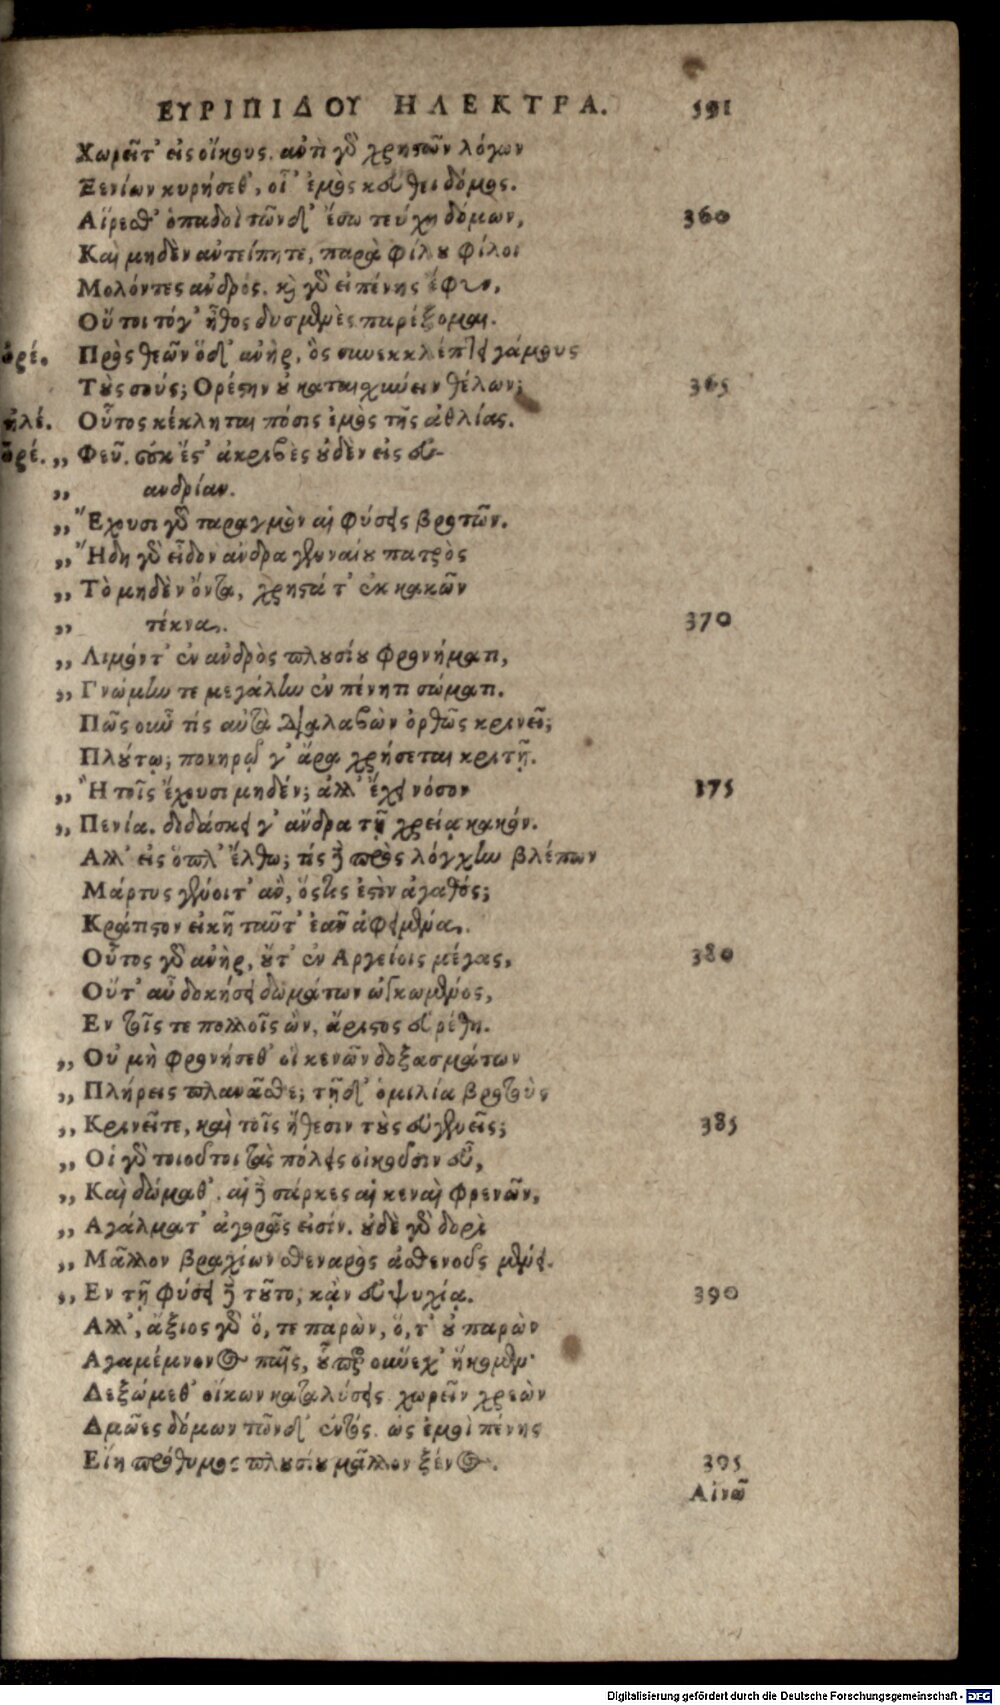 ΕΥΡΙΠΙΔΟΥ ΗΛΕΚΤΡΑ. 591
Χωρεῖτ' εἰς οἴκους. ἀντὶ γὰρ χρηστῶν λόγων
Ξενίων κυρήσεθ', οἷ' ἐμὸς κεύθει δόμος.
Αἴρεσθ' ὀπαδοὶ τῶνδ' ἔσω τεύχη δόμων, 360
Καὶ μηδὲν ἀντείπητε, παρὰ φίλου φίλοι
Μολόντες ἀνδρός. καὶ γὰρ εἰ πένης ἔφυν,
Οὔτοι τόγ' ἦθος δυσμενὲς παρέξομαι.
ὀρέ. Πρὸς θεῶν ὅδ' ἀνὴρ, ὃς συνεκκλέπτει γάμους
Τοὺς σούς; Ορέστην οὐ καταισχύνειν θέλων; 365
ἠλέ. Οὗτος κέκληται πόσις ἐμὸς τῆς ἀθλίας.
ὀρέ. ,, Φεῦ. οὐκ ἔστ' ἀκριβὲς οὐδὲν εἰς εὐ-
,, ανδρίαν.
,, Ἔχουσι γὰρ ταραγμὸν αἱ φύσεις βροτῶν.
,, Ἤδη γὰρ εἶδον ἄνδρα γενναίου πατρὸς
,, Τὸ μηδὲν ὄντα, χρηστά τ' ἐκ κακῶν
,, τέκνα. 370
,, Λιμόν τ' ἐν ἀνδρὸς πλουσίου φρονήματι,
,, Γνώμην τε μεγάλην ἐν πένητι σώματι.
Πῶς οὖν τίς αὐτὰ διαλαβὼν ὀρθῶς κρινεῖ;
Πλούτῳ; πονηρῷ γ' ἄρα χρήσεται κριτῇ.
,, Ἢ τοῖς ἔχουσι μηδέν; ἀλλ' ἔχει νόσον 375
,, Πενία. διδάσκει γ' ἄνδρα τῇ χρείᾳ κακόν.
Αλλ' εἰς ὅπλ' ἔλθω; τίς δὲ πρὸς λόγχην βλέπων
Μάρτυς γένοιτ' ἂν, ὅστις ἐστὶν ἀγαθός;
Κράτιστον εἰκῆ ταῦτ' ἐᾶν ἀφειμένα.
Οὗτος γὰρ ἀνὴρ, οὔτ' ἐν Αργείοις μέγας, 380
Οὔτ' αὖ δοκήσει δωμάτων ὠγκωμένος,
Εν τοῖς τε πολλοῖς ὢν, ἄριστος εὑρέθη.
,, Οὐ μὴ φρονήσεθ' οἳ κενῶν δοξασμάτων
,, Πλήρεις πλανᾶσθε; τῇ δ' ὁμιλίᾳ βροτοὺς
,, Κρινεῖτε, καὶ τοῖς ἤθεσιν τοὺς εὐγενεῖς; 385
,, Οἱ γὰρ τοιοῦτοι τὰς πόλεις οἰκοῦσιν εὖ,
,, Καὶ δώμαθ'. αἱ δὲ σάρκες αἱ κεναὶ φρενῶν,
,, Αγάλματ' ἀγορᾶς εἰσίν. οὐδὲ γὰρ δορὶ
,, Μᾶλλον βραχίων σθεναρὸς ἀσθενοῦς μένει.
,, Εν τῇ φύσει δὲ τοῦτο, κᾀν εὐψυχίᾳ. 390
Αλλ', ἄξιος γὰρ ὅ, τε παρὼν, ὅ, τ' οὐ παρὼν
Αγαμέμνονος παῖς, οὗπερ οὕνεχ' ἥκομεν·
Δεξώμεθ' οἴκων καταλύσεις. χωρεῖν χρεὼν
Δμῶες δόμων τῶνδ' ἐντός. ὡς ἐμοὶ πένης
Εἴη πρόθυμος πλουσίου μᾶλλον ξένος. 395
Αἰνῶ
Digitalisierung gefördert durch die Deutsche Forschungsgemeinschaft - DFG